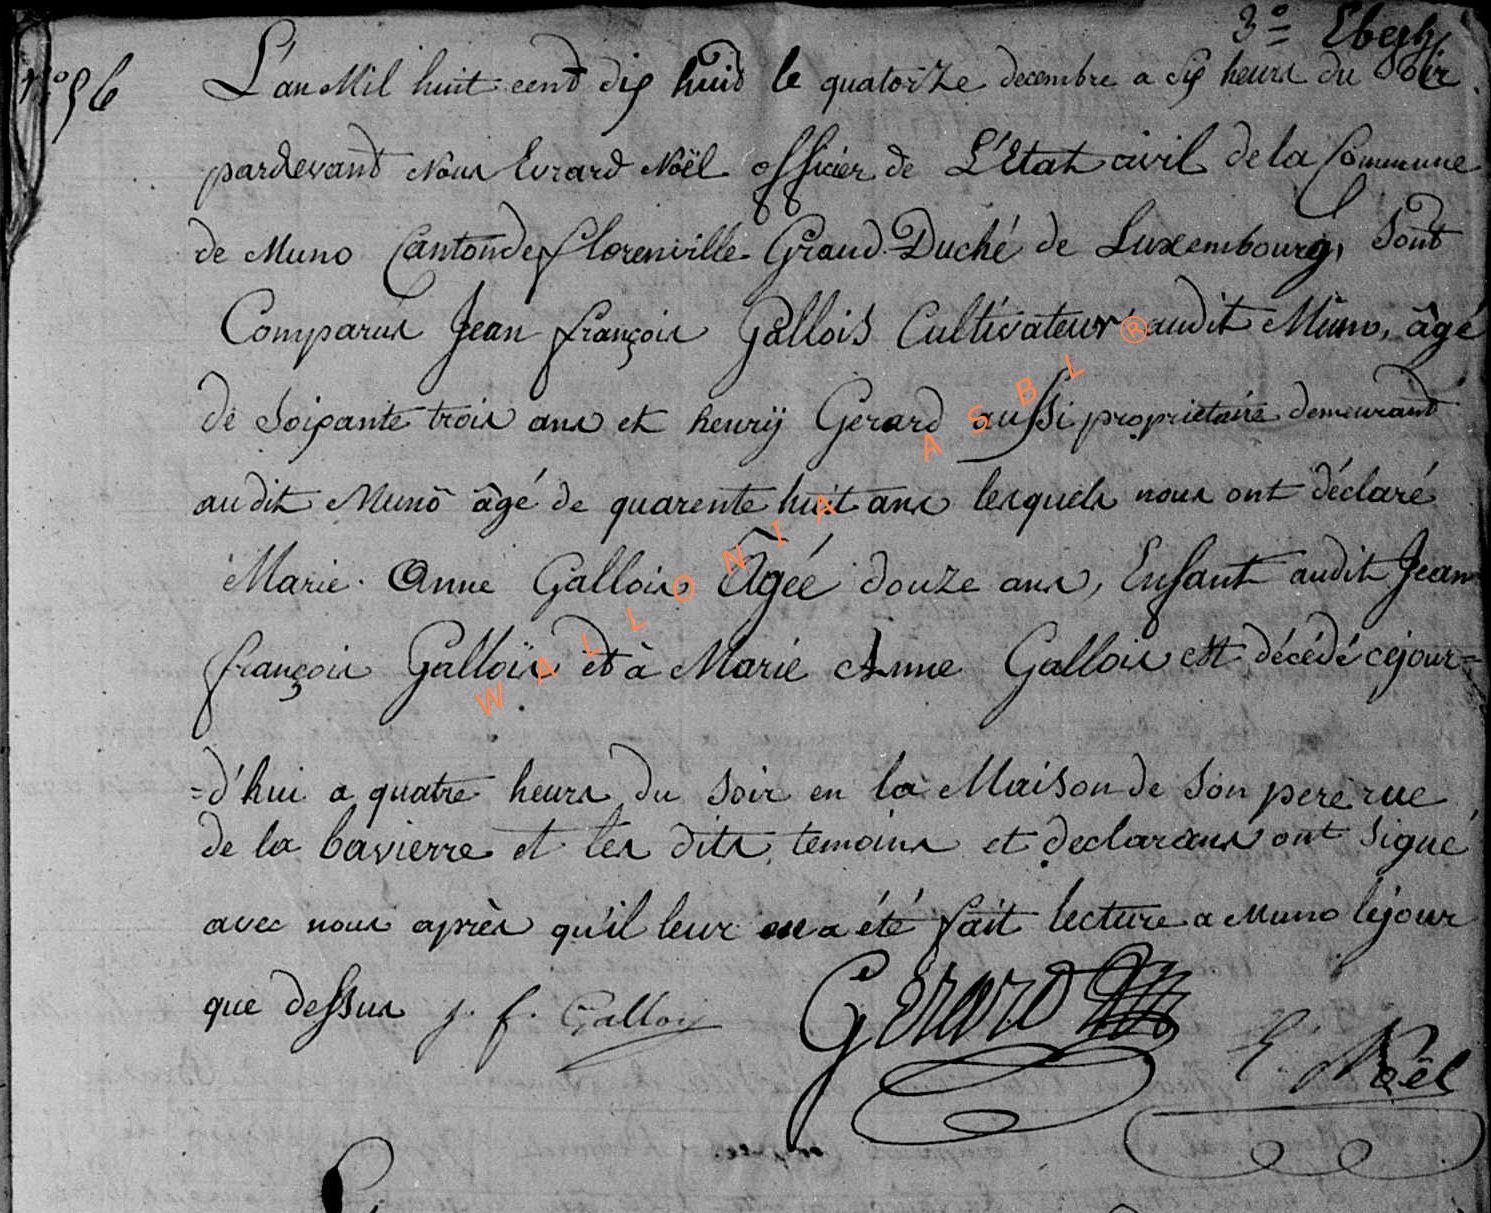 3° Ebegh
N° 56
L'an Mil huit cent dix huit le quatorze decembre a six heurs du soir
pardevant Nous Evrard Noël officier de L'Etat civil de la Commune
de Muno Canton de florenville Grand Duché de Luxembourg, sont
Comparus Jean françois Gallois Cultivateur audit Muno, âgé
de soixante trois ans et henrÿ Gerard aussi proprietaire demeurant
audit Muno âgé de quarente huit ans lesquels nous ont déclaré
Marie Anne Gallois Âgée douze ans, Enfant audit Jean
françois Galloïs et à Marie Anne Gallois est décédé cejour=
=d'hui a quatre heurs du soir en la Maison de son pere rue
de la bavierre et les dits temoins et declarans ont signé
avec nous après qu'il leur en a été fait lecture a Muno le jour
que dessus J. f. Gallois
Gerard
E. Noël
WALLONIA ASBL ®